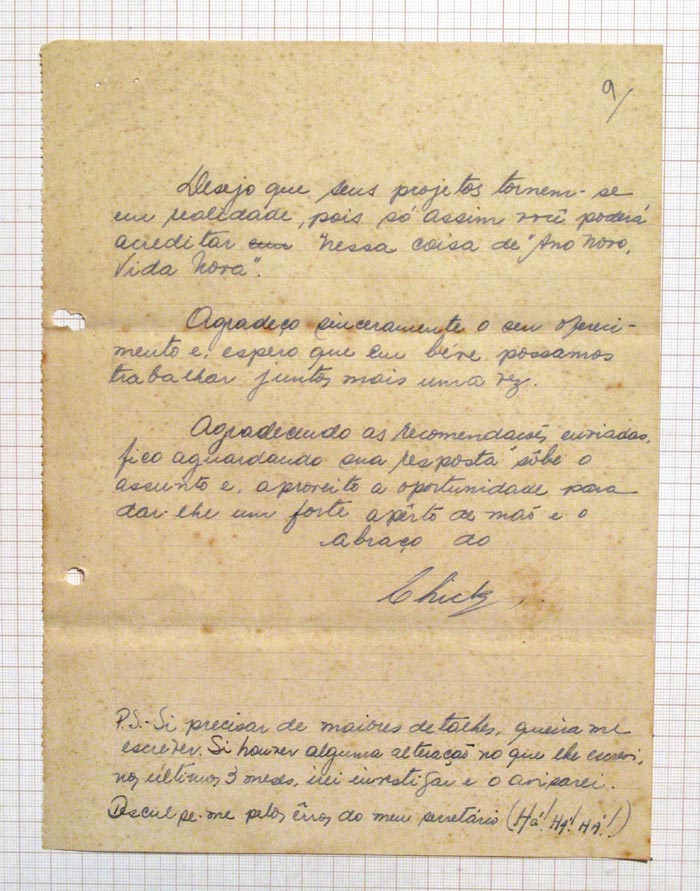 9/
Desejo que seus projetos tornem-se
em realidade, pois só assim você poderá
acreditar em "nessa coisa de "Ano Novo,
Vida Nova".
Agradeço sinceramente o seu ofereci-
mento e, espero que em béve possamos
trabalhar juntos mais uma vez.
Agradecendo as recomendações enviadas,
fico aguardando sua resposta sôbe o
assunto e, aproveito a oportunidade para
dar-lhe um forte apêrto de mão e o
abraço do
P.S.- Si precisar de maiores detalhes, queira me
escrever. Si houver alguma alteração no que lhe escrevi,
nos últimos 3 meses, irei investigar e o avisarei.
Desculpe-me pelos êrros do meu secretário (Há! HÁ! HÁ!)